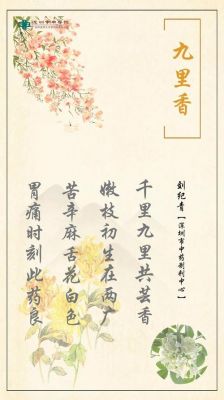 深圳市中医院
九里香
刘纪青【深圳市中药制剂中心】
千里九里共芸香
嫩枝初生在两广
苦辛麻舌花白色
胃痛时刻此药良